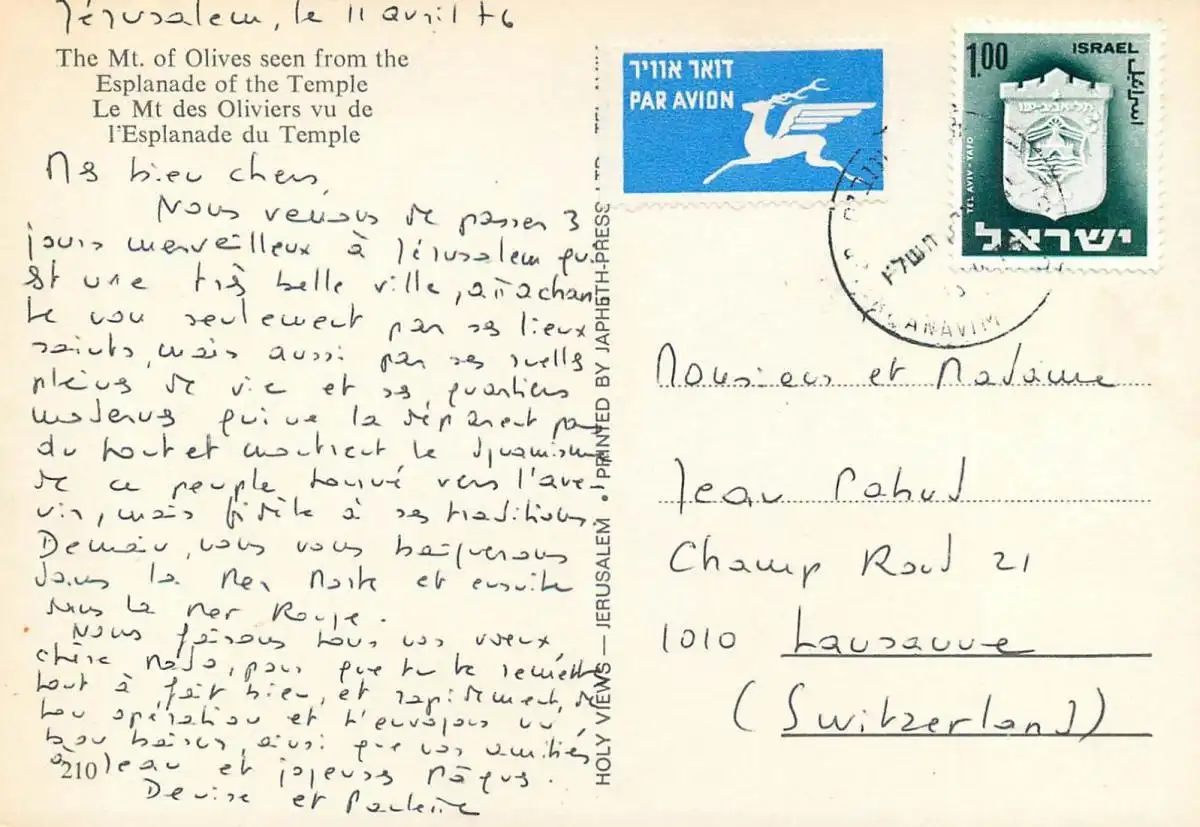 Jérusalem, le 11 avril 76
The Mt. of Olives seen from the
Esplanade of the Temple
Le Mt des Oliviers vu de
l'Esplanade du Temple
Mes bien chers,
Nous venons de passer 3
jours merveilleux à Jérusalem qui
est une très belle ville, attachan
te non seulement par ses lieux
saints, mais aussi par ses ruelles
pleines de vie et ses quartiers
modernes qui ne la déparent pas
du tout et montrent le dynamisme
de ce peuple tourné vers l'ave-
nir, mais fidèle à ses traditions.
Demain, nous nous baignerons
dans la Mer Morte et ensuite
dans la Mer Rouge.
Nous faisons tous nos voeux,
chère Mado, pour que tu te remettes
tout à fait bien, et rapidement, de
ton opération et t'envoyons un
bon baiser, ainsi que nos amitiés
à Jean et joyeuses Pâques.
Denise et
210
HOLY VIEWS — JERUSALEM • PRINTED BY JAPHETH-PRESS LTD. TEL AVIV
דואר אוויר
PAR AVION
1.00
ISRAEL
اسرائيل
תל-אביב-יפו
TEL AVIV - YAFO
ישראל
התשל"ו
ANAVIM
Monsieur et Madame
Jean Pahud
Champ Rond 21
1010 Lausanne
(Switzerland)